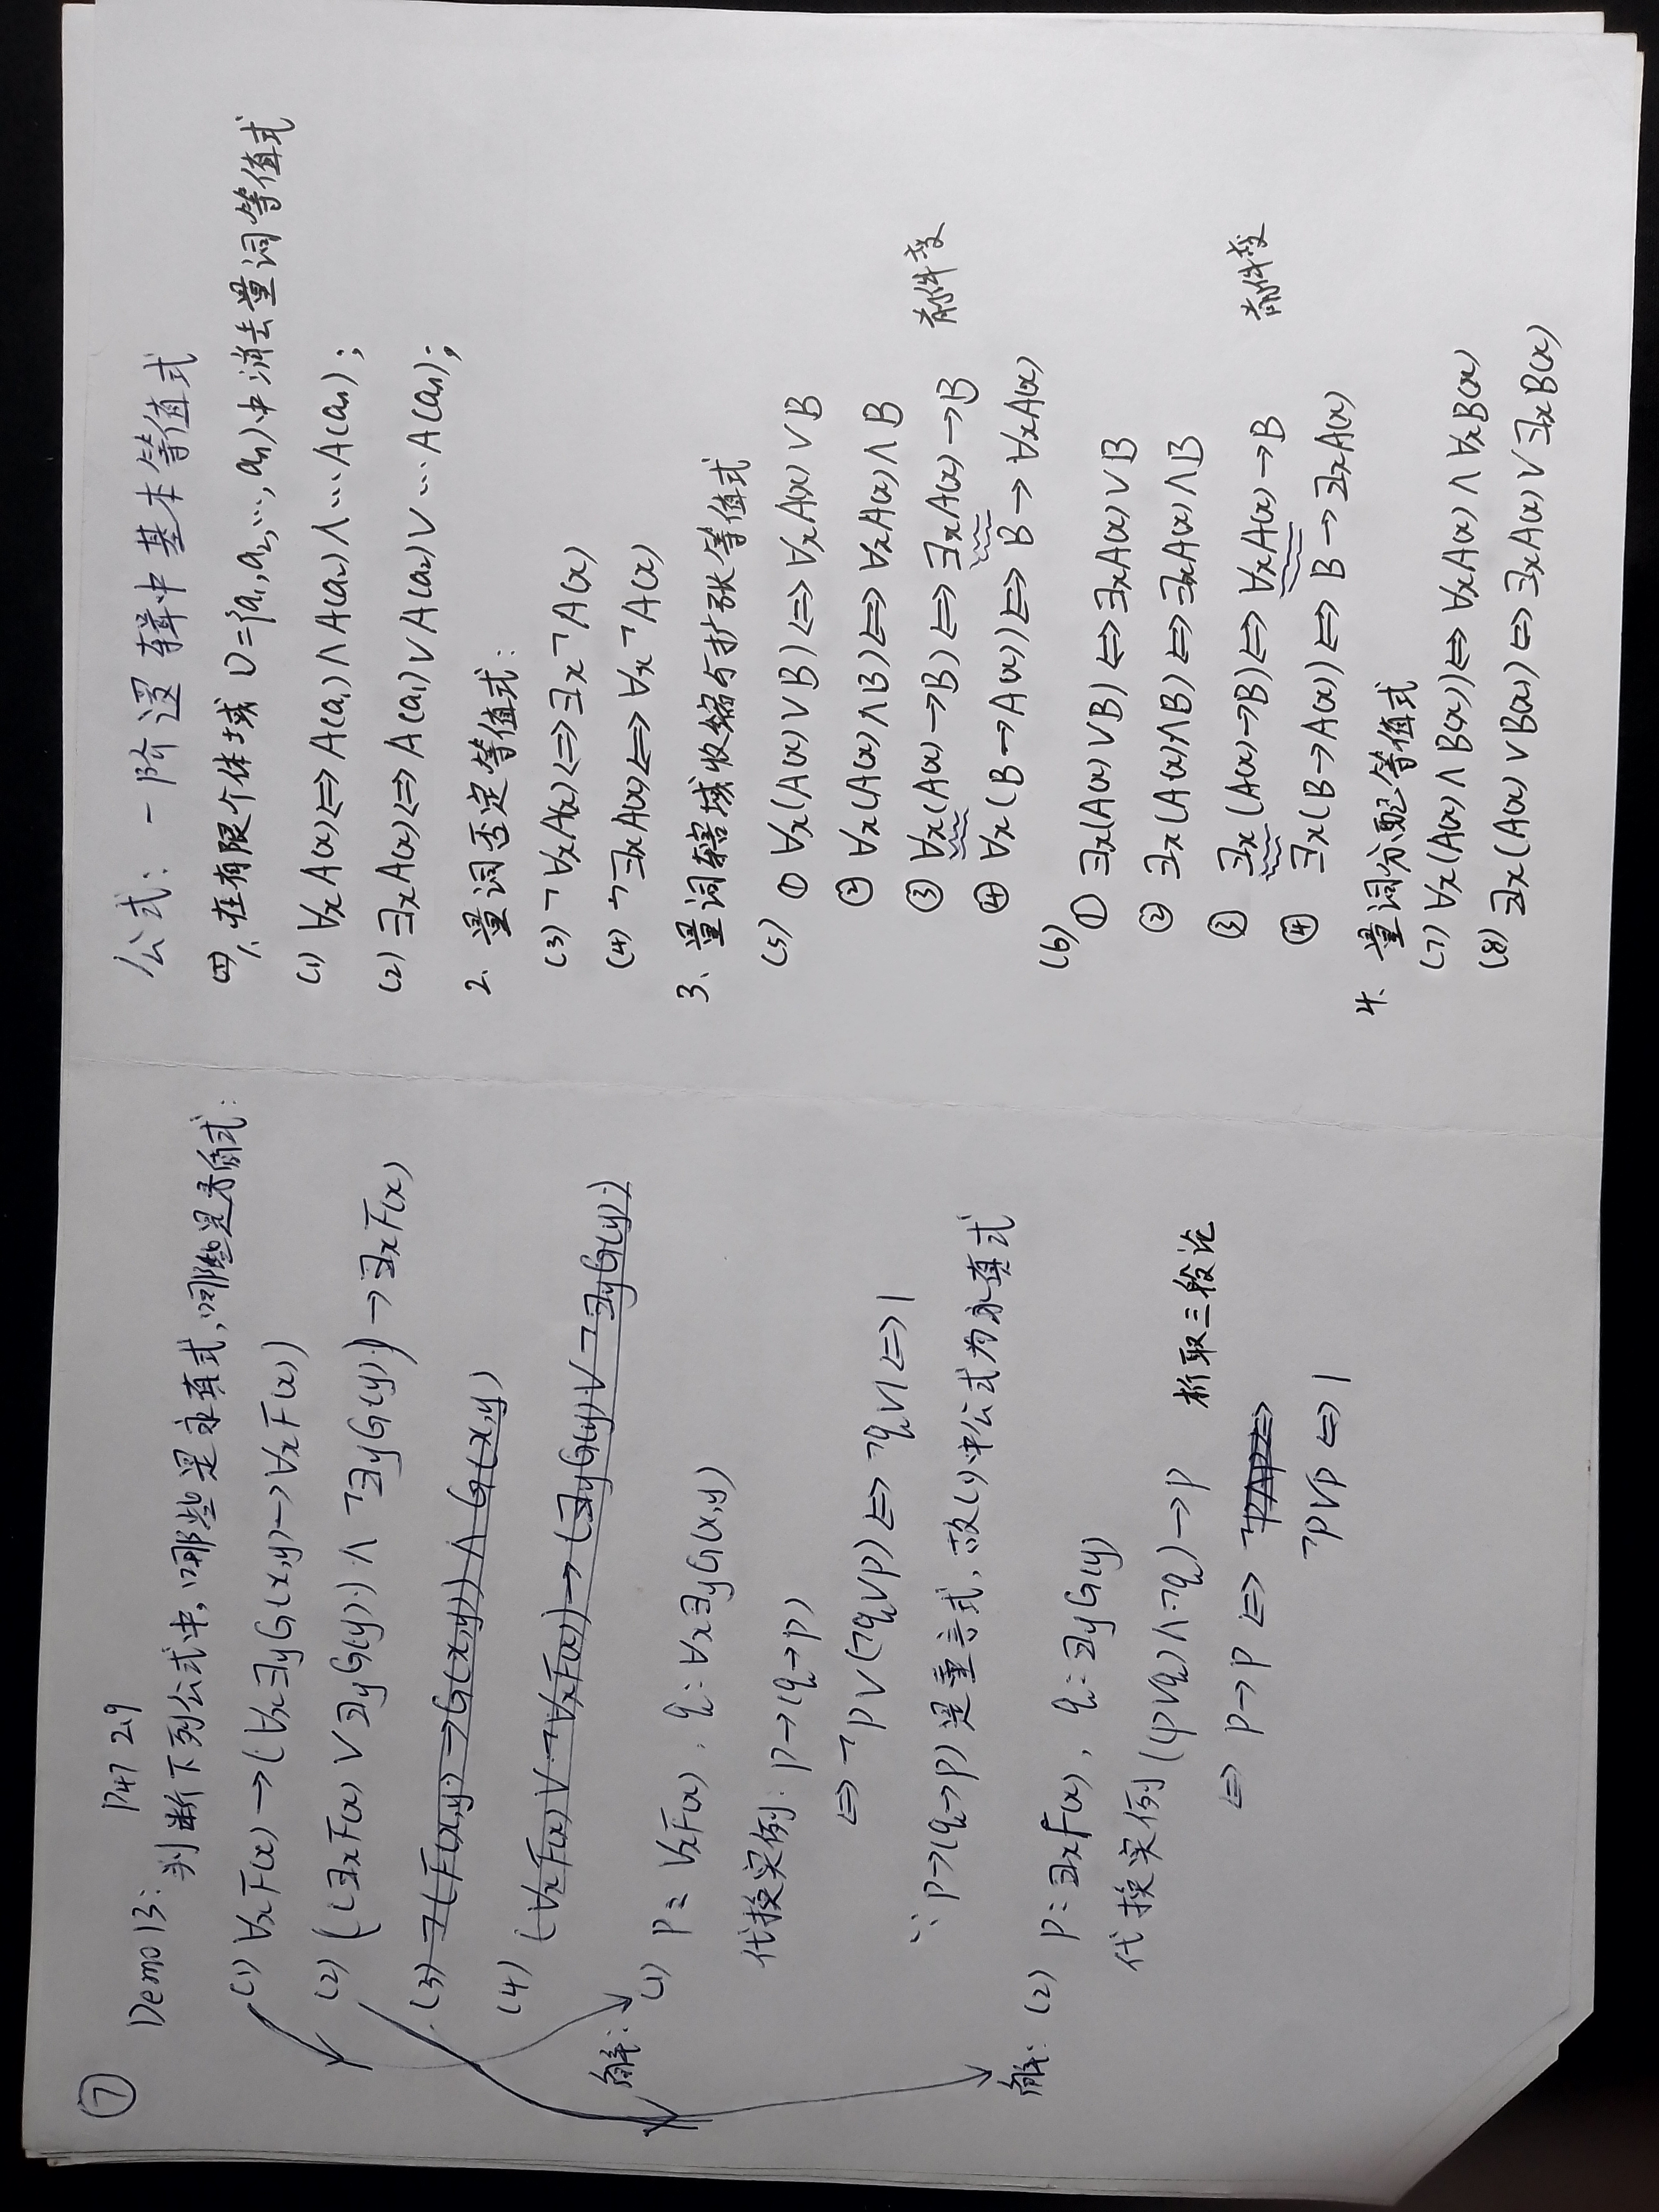 ⑦
P47 2.9
Demo 13:
判断下列公式中，哪些是永真式，哪些是矛盾式：
(1) ∀xF(x)→(∀x∃yG(x,y)→∀xF(x))
(2) ((∃xF(x)∨∃yG(y))∧¬∃yG(y))→∃xF(x)
(3) ¬(F(x,y)→G(x,y))∧G(x,y)
(4) (∀xF(x)∨¬∀xF(x))→(∃yG(y)∨¬∃yG(y))
解：
(1) p: ∀xF(x), q: ∀x∃yG(x,y)
代换实例: p→(q→p)
⇔ ¬p∨(¬q∨p)⇔¬q∨1⇔1
∵ p→(q→p)是重言式, 故(1)中公式为永真式
解: (2) p: ∃xF(x), q: ∃yG(y)
代换实例 ((p∨q)∧¬q)→p 析取三段论
⇔ p→p ⇔ ¬p∧p⇔
¬p∨p ⇔ 1
公式: 一阶逻辑中基本等值式
1、在有限个体域 D={a₁,a₂,…,aₙ)中消去量词等值式
(1) ∀xA(x)⇔A(a₁)∧A(a₂)∧…A(aₙ);
(2) ∃xA(x)⇔A(a₁)∨A(a₂)∨…A(aₙ);
2、量词否定等值式:
(3) ¬∀xA(x)⇔∃x¬A(x)
(4) ¬∃xA(x)⇔∀x¬A(x)
3、量词辖域收缩与扩张等值式
(5) ① ∀x(A(x)∨B)⇔∀xA(x)∨B
② ∀x(A(x)∧B)⇔∀xA(x)∧B
③ ∀x(A(x)→B)⇔∃xA(x)→B 前件变
④ ∀x(B→A(x))⇔B→∀xA(x)
(6) ① ∃x(A(x)∨B)⇔∃xA(x)∨B
② ∃x(A(x)∧B)⇔∃xA(x)∧B
③ ∃x(A(x)→B)⇔∀xA(x)→B 前件变
④ ∃x(B→A(x))⇔B→∃xA(x)
4、量词分配等值式
(7) ∀x(A(x)∧B(x))⇔∀xA(x)∧∀xB(x)
(8) ∃x(A(x)∨B(x))⇔∃xA(x)∨∃xB(x)